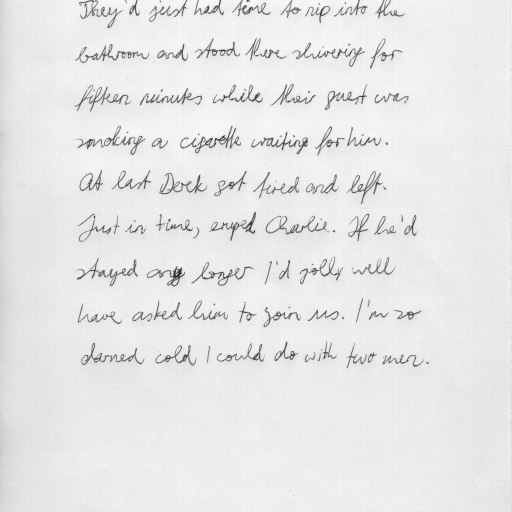 They'd just had time to nip into the
bathroom and stood there shivering for
fifteen minutes while their guest was
smoking a cigarette waiting for him.
At last Derek got tired and left.
Just in time, erupted Charlie. If he'd
stayed any longer I'd jolly well
have asked him to join us. I'm so
darned cold I could do with two men.